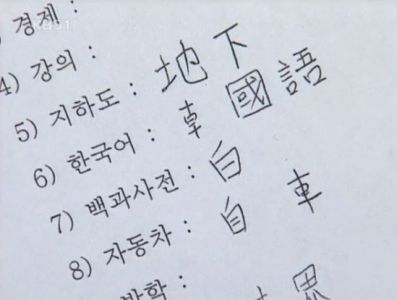 ) 경제 :
4) 강의 :
5) 지하도 : 地下
6) 한국어 : 國語
7) 백과사전 : 白
8) 자동차 : 自 車
방학 :